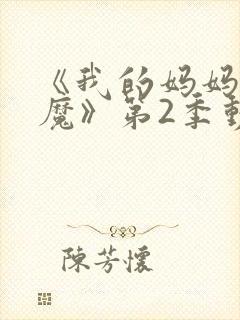 《我的妈妈
魔》第2季動
陳芳懷